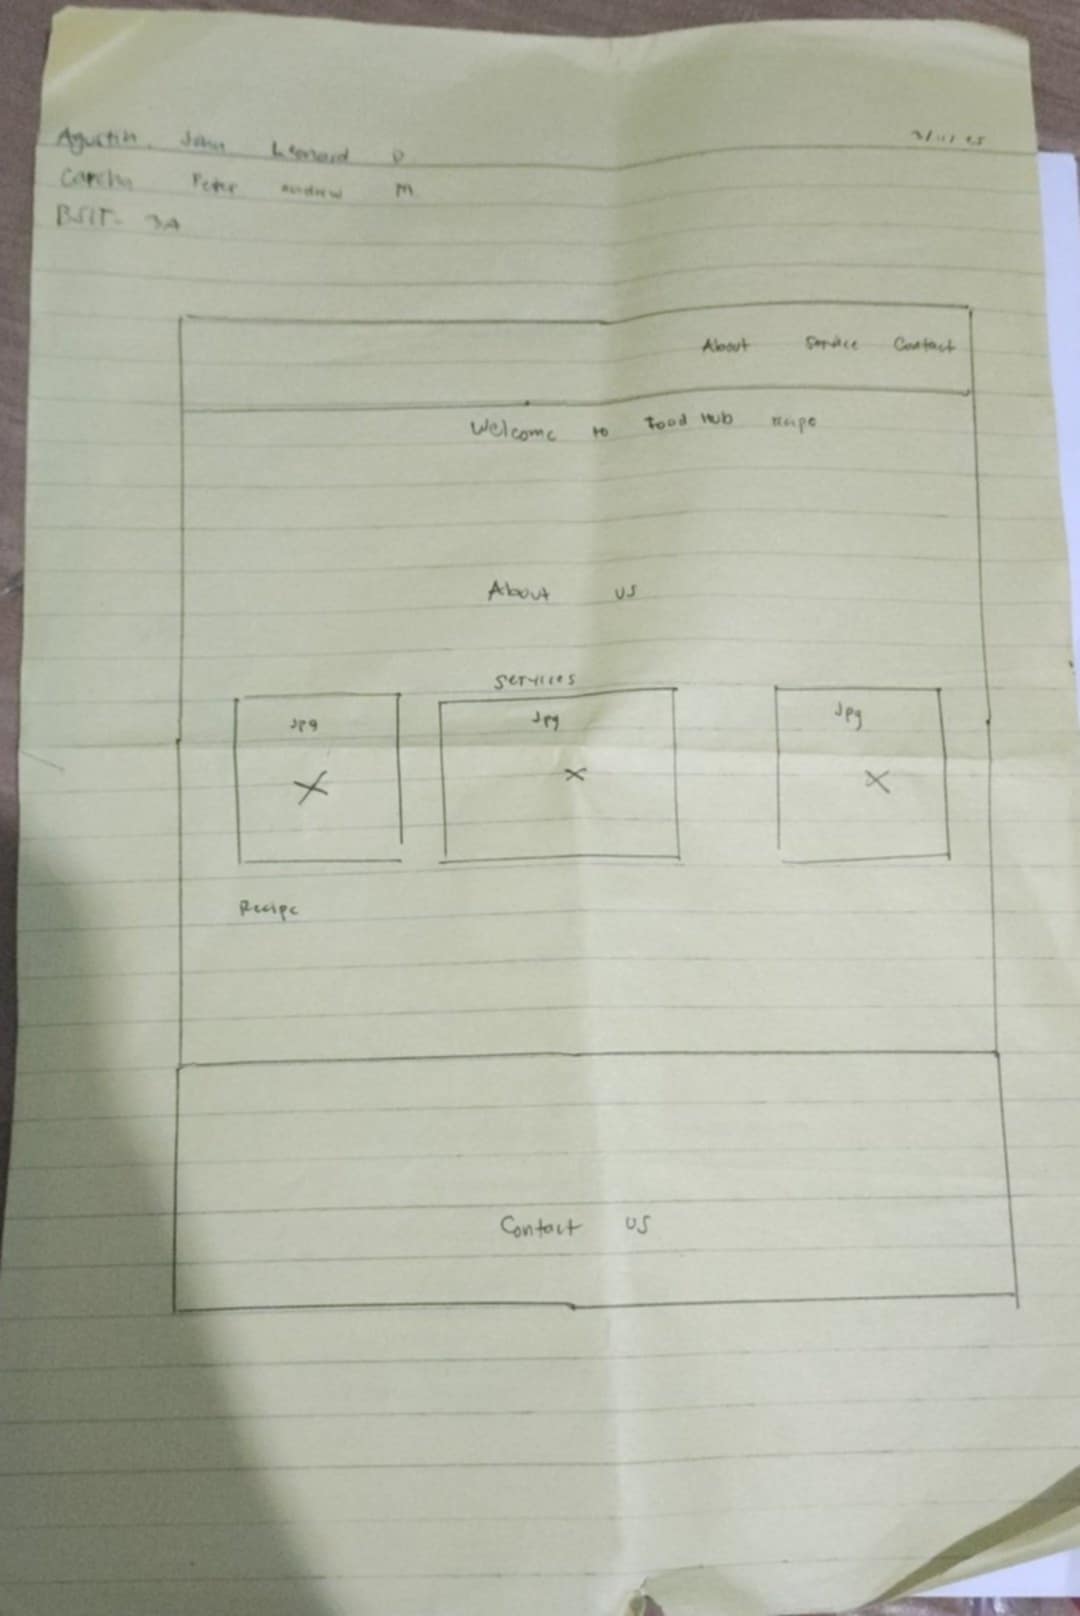 Agustin, John Leonard D
Peter Andrew M
BSIT- 3A
About Service Contact
Welcome to Food Hub recipe
About us
Services
Jpg Jpg Jpg
Recipe
Contact us